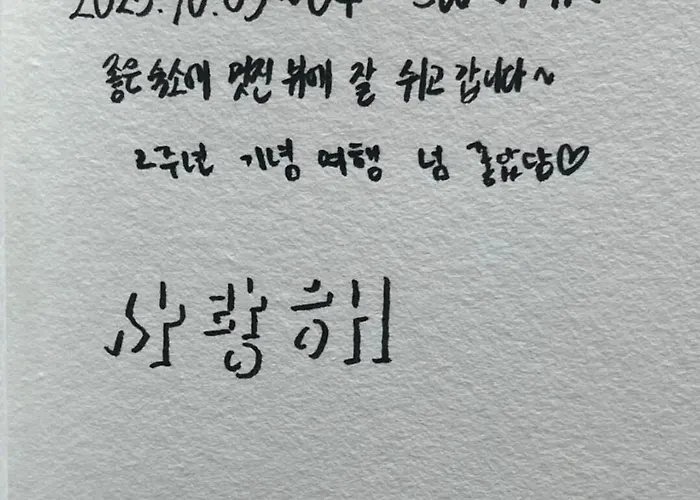 2023.10.03 ~ 04
좋은 숙소에 멋진 뷰에 잘 쉬고 갑니다~
2주년 기념 여행 넘 좋았당♡
사랑해